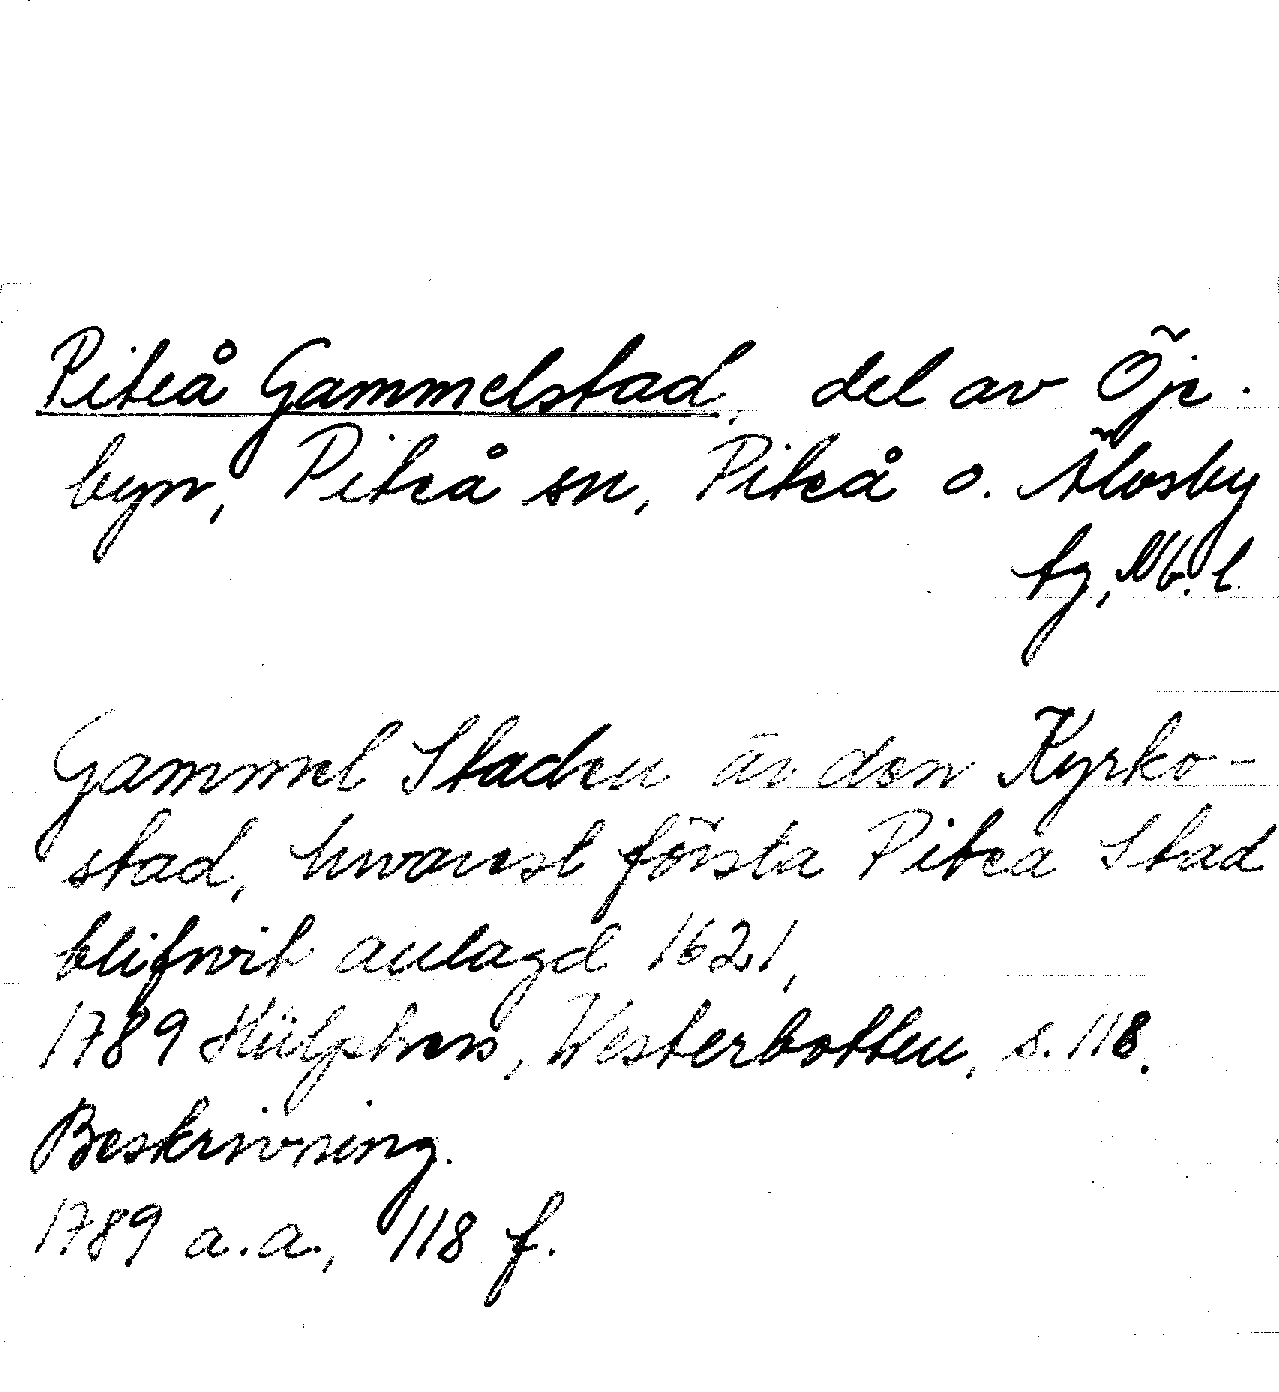 Piteå Gammelstad, del av Öje-
byn, Piteå sn, Piteå o. Älvsby
tg, Nb. l.
Gammel Staden är den Kyrko-
stad, hwarest första Pitea Stad
blifwit anlagd 1621,
1789 Hülphers, Westerbotten, s. 118.
Beskrivning.
1789 a.a., 118 f.